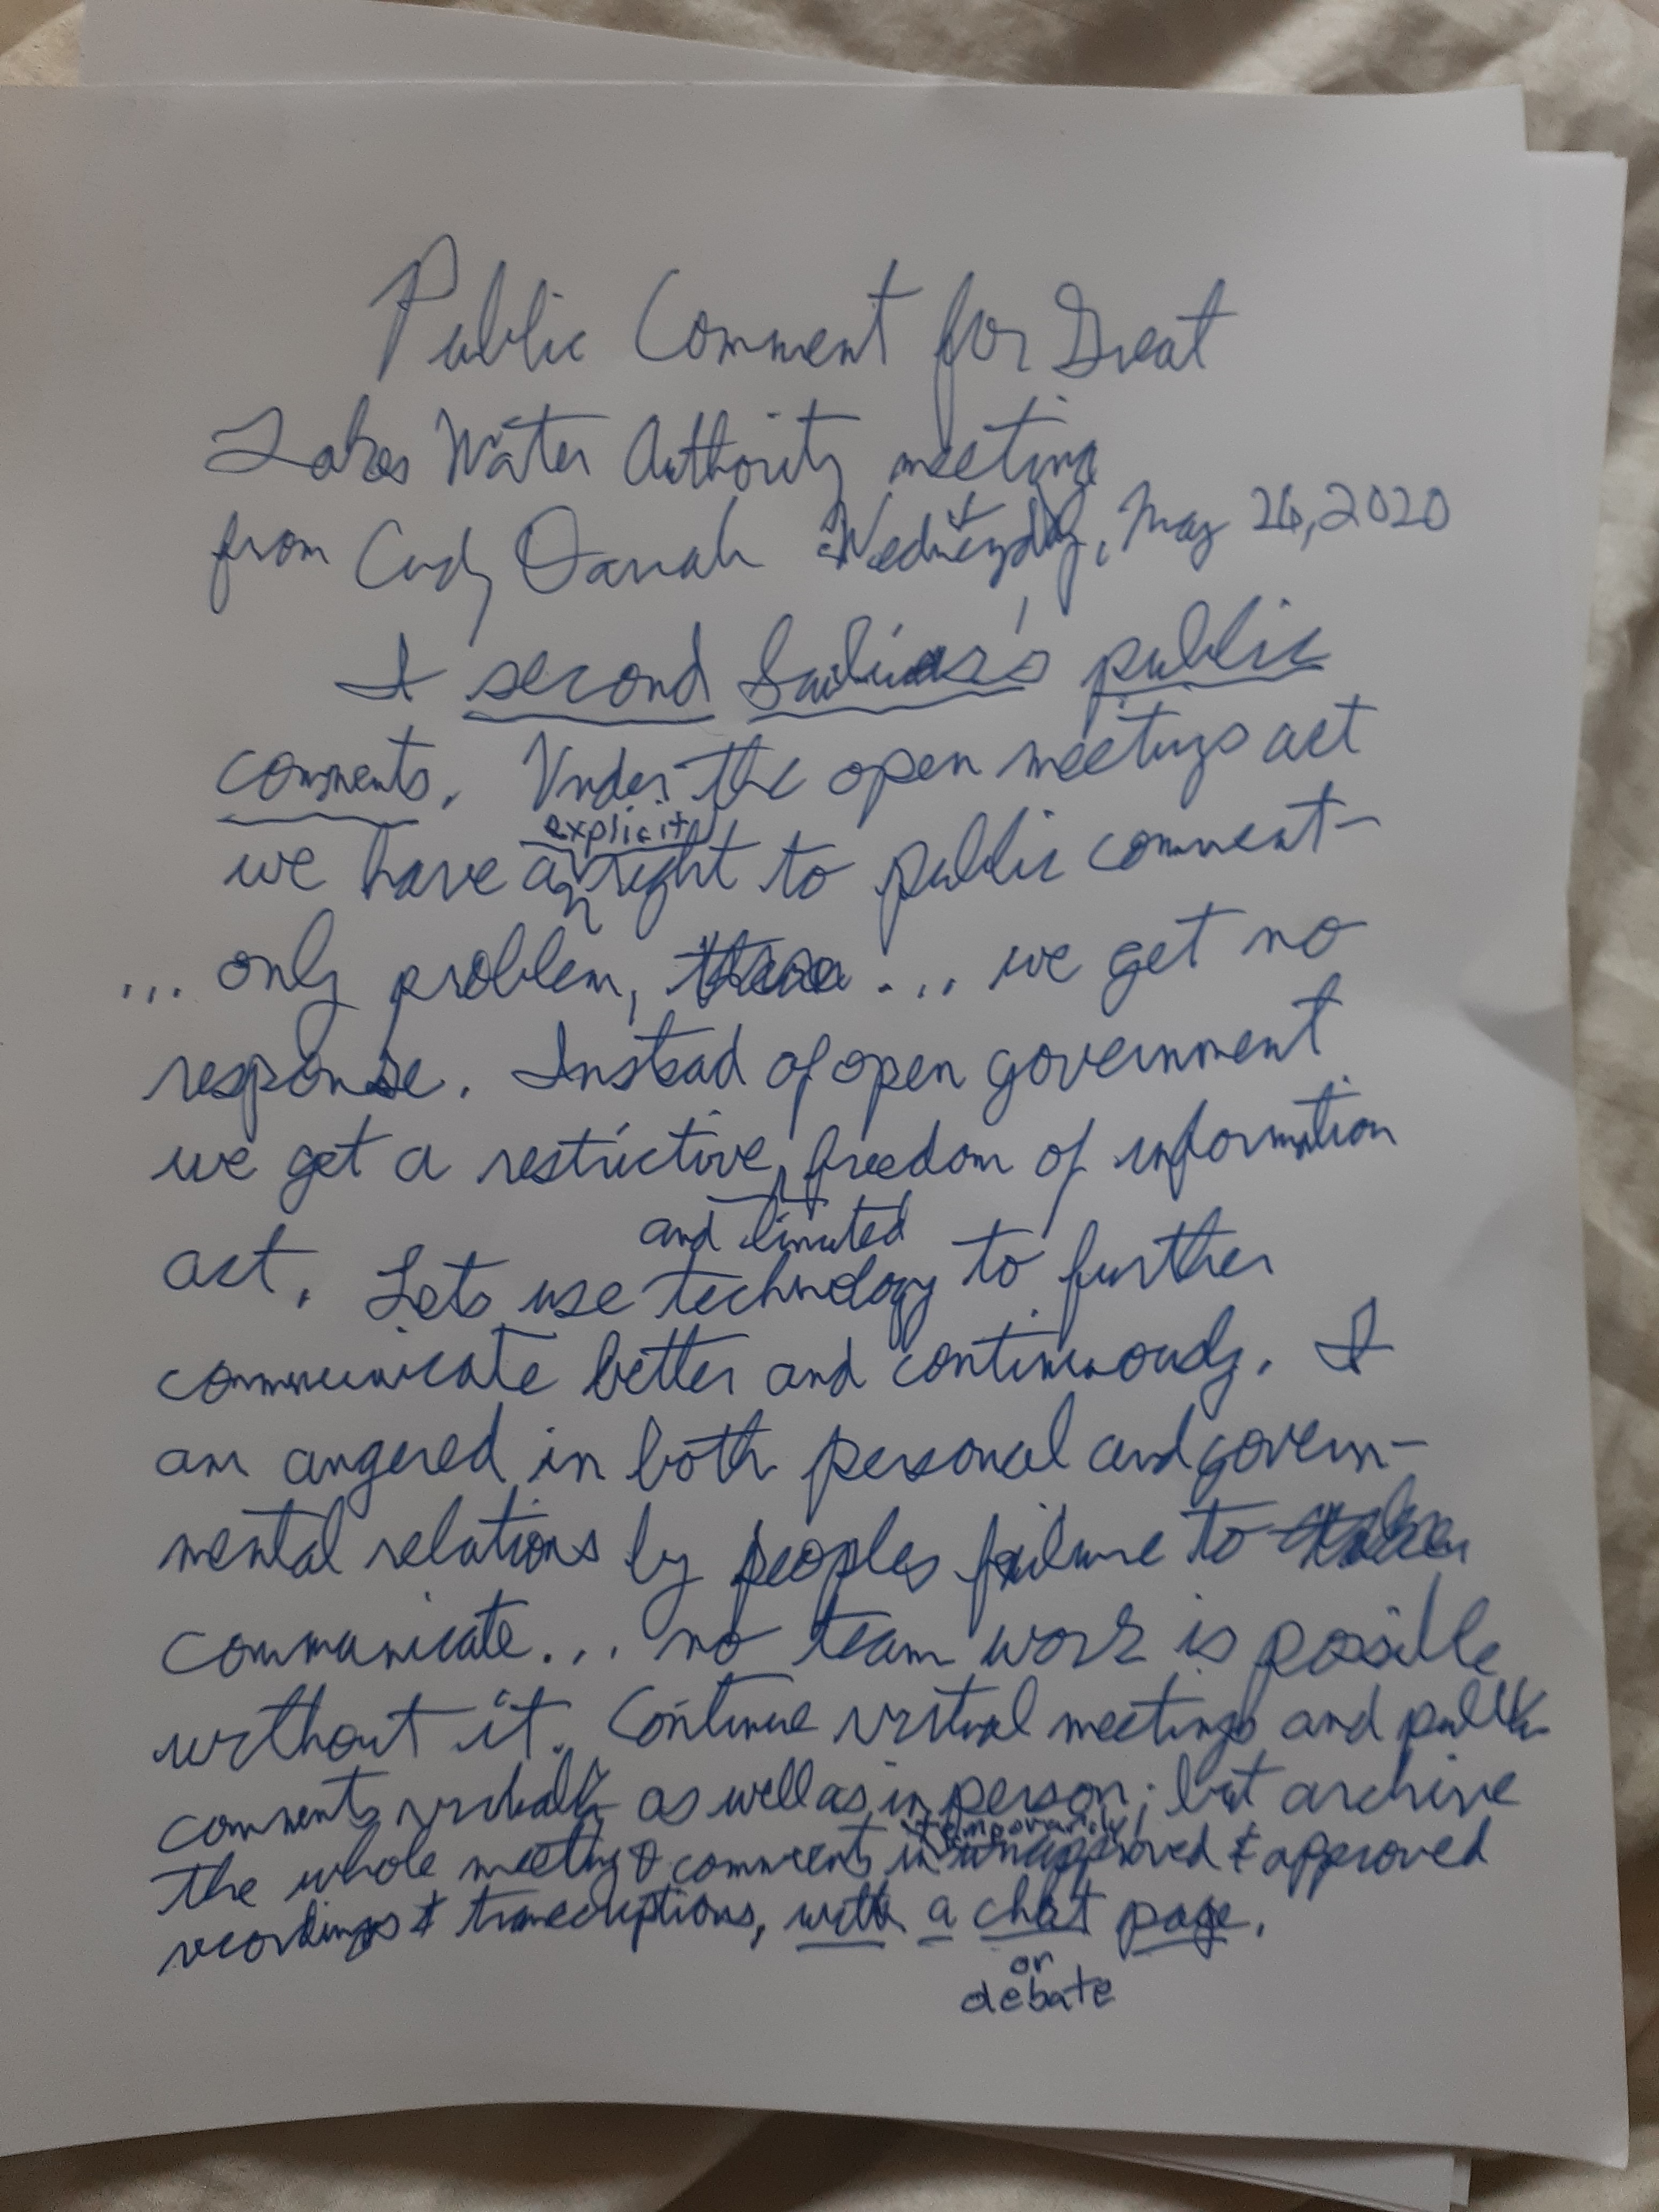 Public Comment for Great
Lakes Water Authority meeting
from Cody Darrah Wednesday, May 26, 2020
I second public
comments. Under the open meetings act
explicit
we have an right to public comment-
... only problem, ... we get no
response. Instead of open government
we get a restrictive, freedom of information
act. Lets use technology to further
and limited
communicate better and continuously. I
am angered in both personal and govern-
mental relations by peoples failure to
communicate... no team work is possible
without it. Continue virtual meetings and public
comments verbally as well as in person; but archive
temporarily
the whole meeting & comments in unapproved & approved
recordings & transcriptions, with a chat page.
or
debate